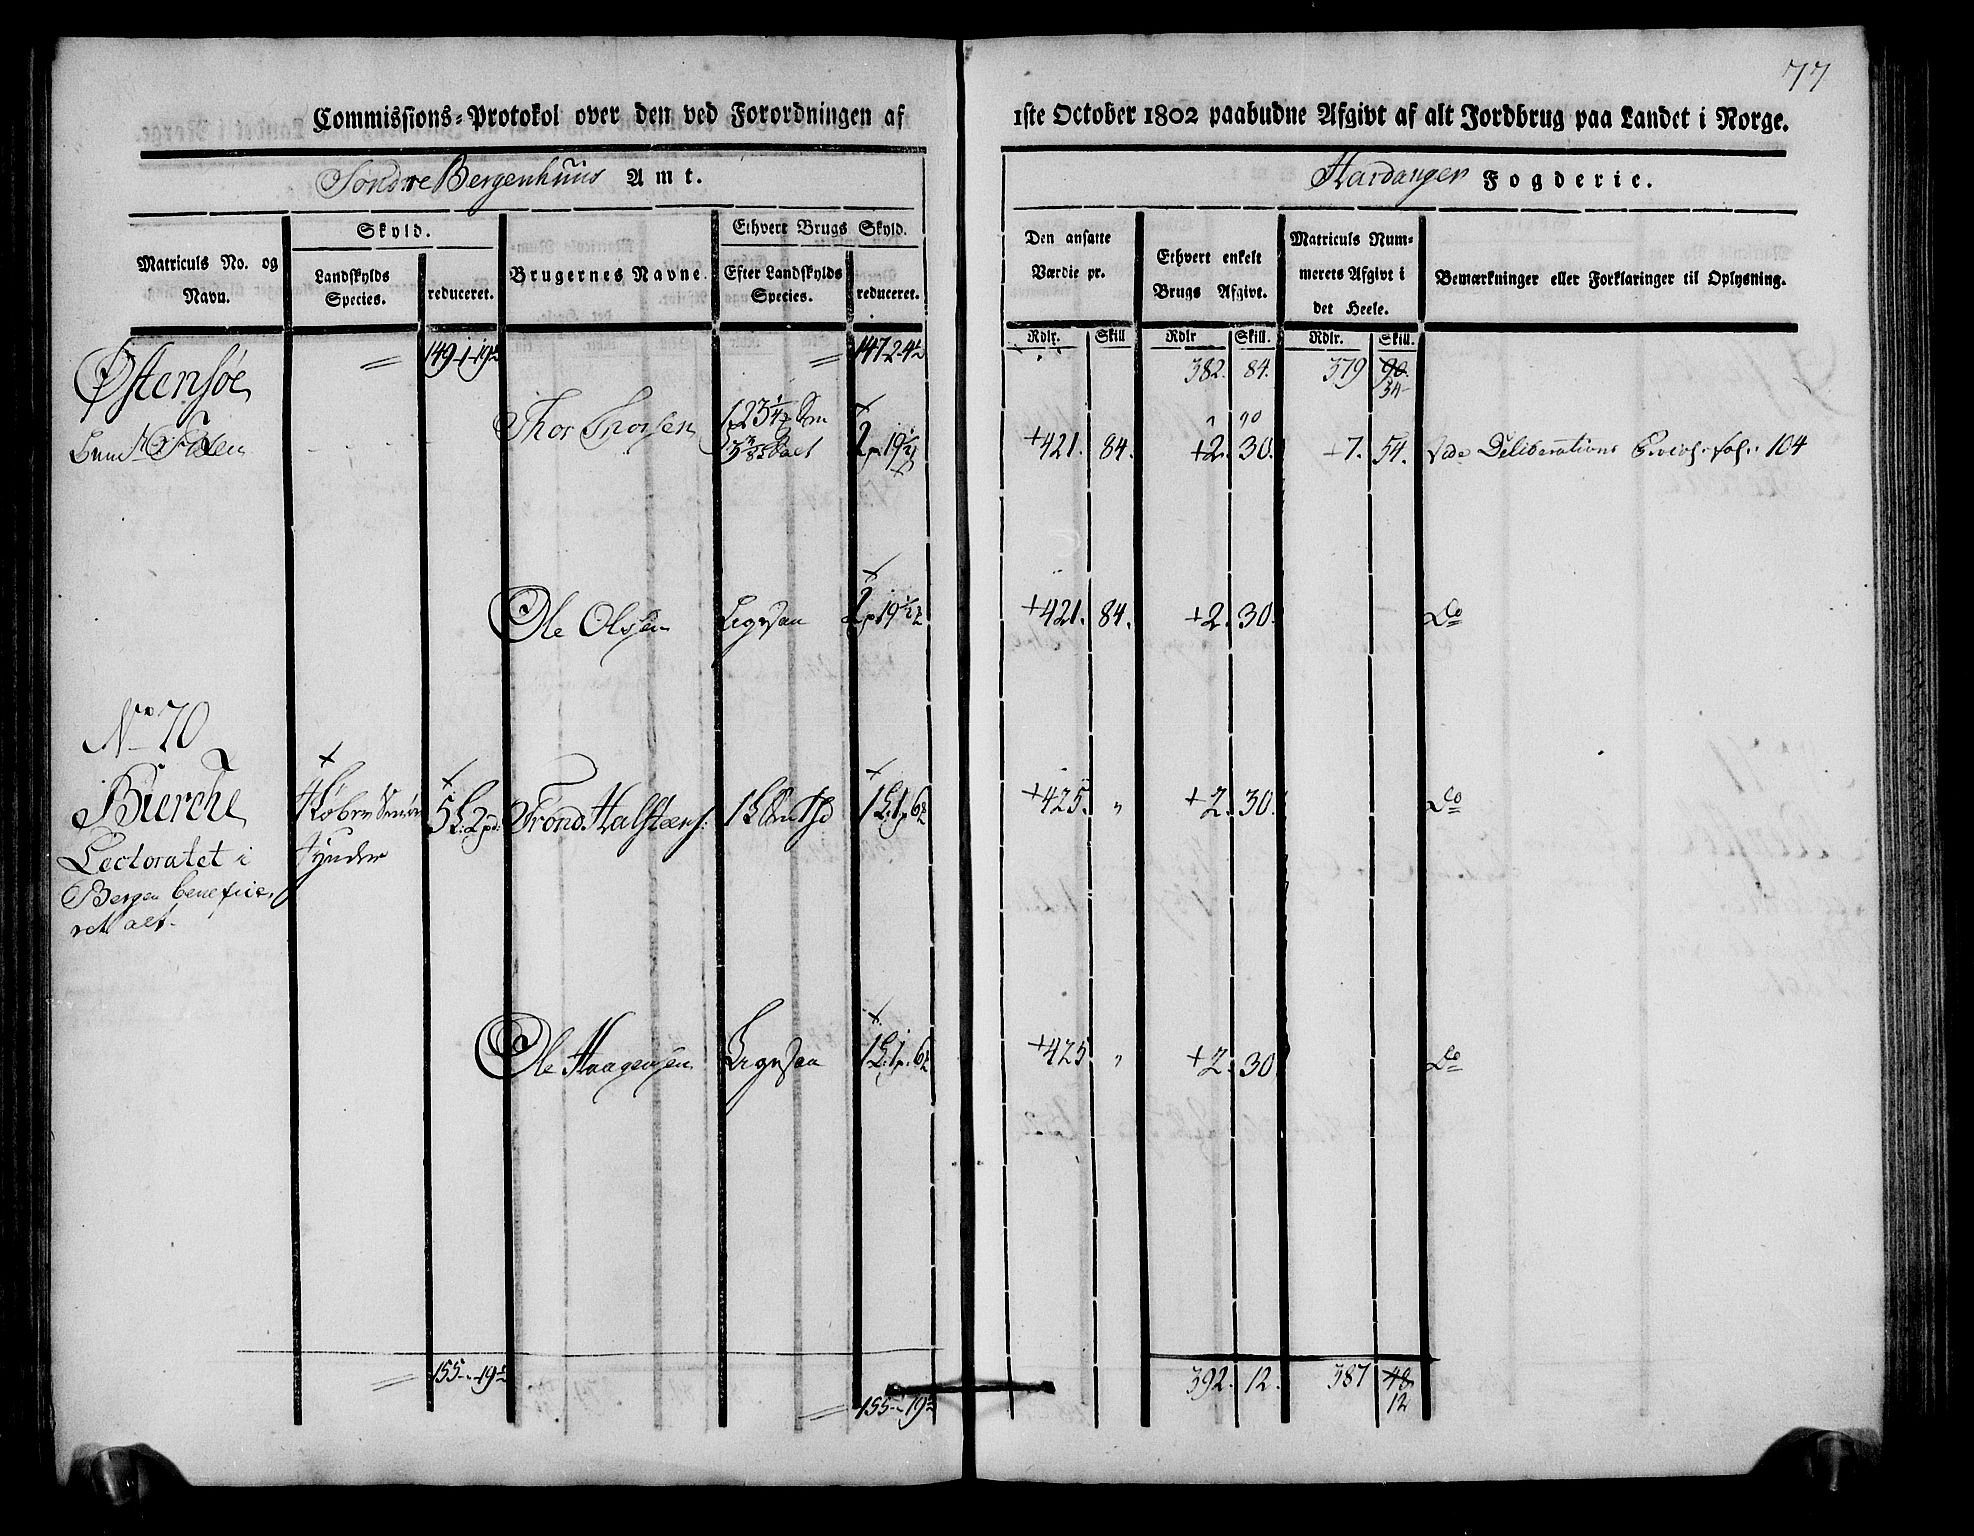 77
Commissions-Protokol over den ved Forordningen af 1ste October 1802 paabudne Afgivt af alt Jordbrug paa Landet i Norge.
Søndre Bergenhuus Amt.
Hardanger Fogderie.
Matriculs No. og Navn.
Skyld.
Landskylds Species.
reduceret.
Brugernes Navne.
Ethvert Brugs Skyld.
Efter Landskylds Species.
reduceret.
Den ansatte Værdie pr.
Ethvert enkelt Brugs Afgivt.
Matriculs Nummerets Afgivt i det Heele.
Bemærkninger eller Forklaringer til Oplysning.
Rdlr. Skill Rdlr Skill. Rdlr. Skill.
Østensøe
149-1-19½ 147-2-4½ 382. 84. 379 90. 54
Thor Thorsen +421. 84. +2. 30. +7. 54. Vide Deliberations fol. 104
Ole Olsen Ligesaa +421. 84. +2. 30. Do
No 70
Bierche
Lectoratet i
Bergen beneficeret alt.
Tynder
Trond Halsteens. +425. " +2. 30. Do
Ole Haagensen Ligesaa +425 " +2. 30. Do
155-"-19½ 155-"-19½ 392. 12. 387 48 12